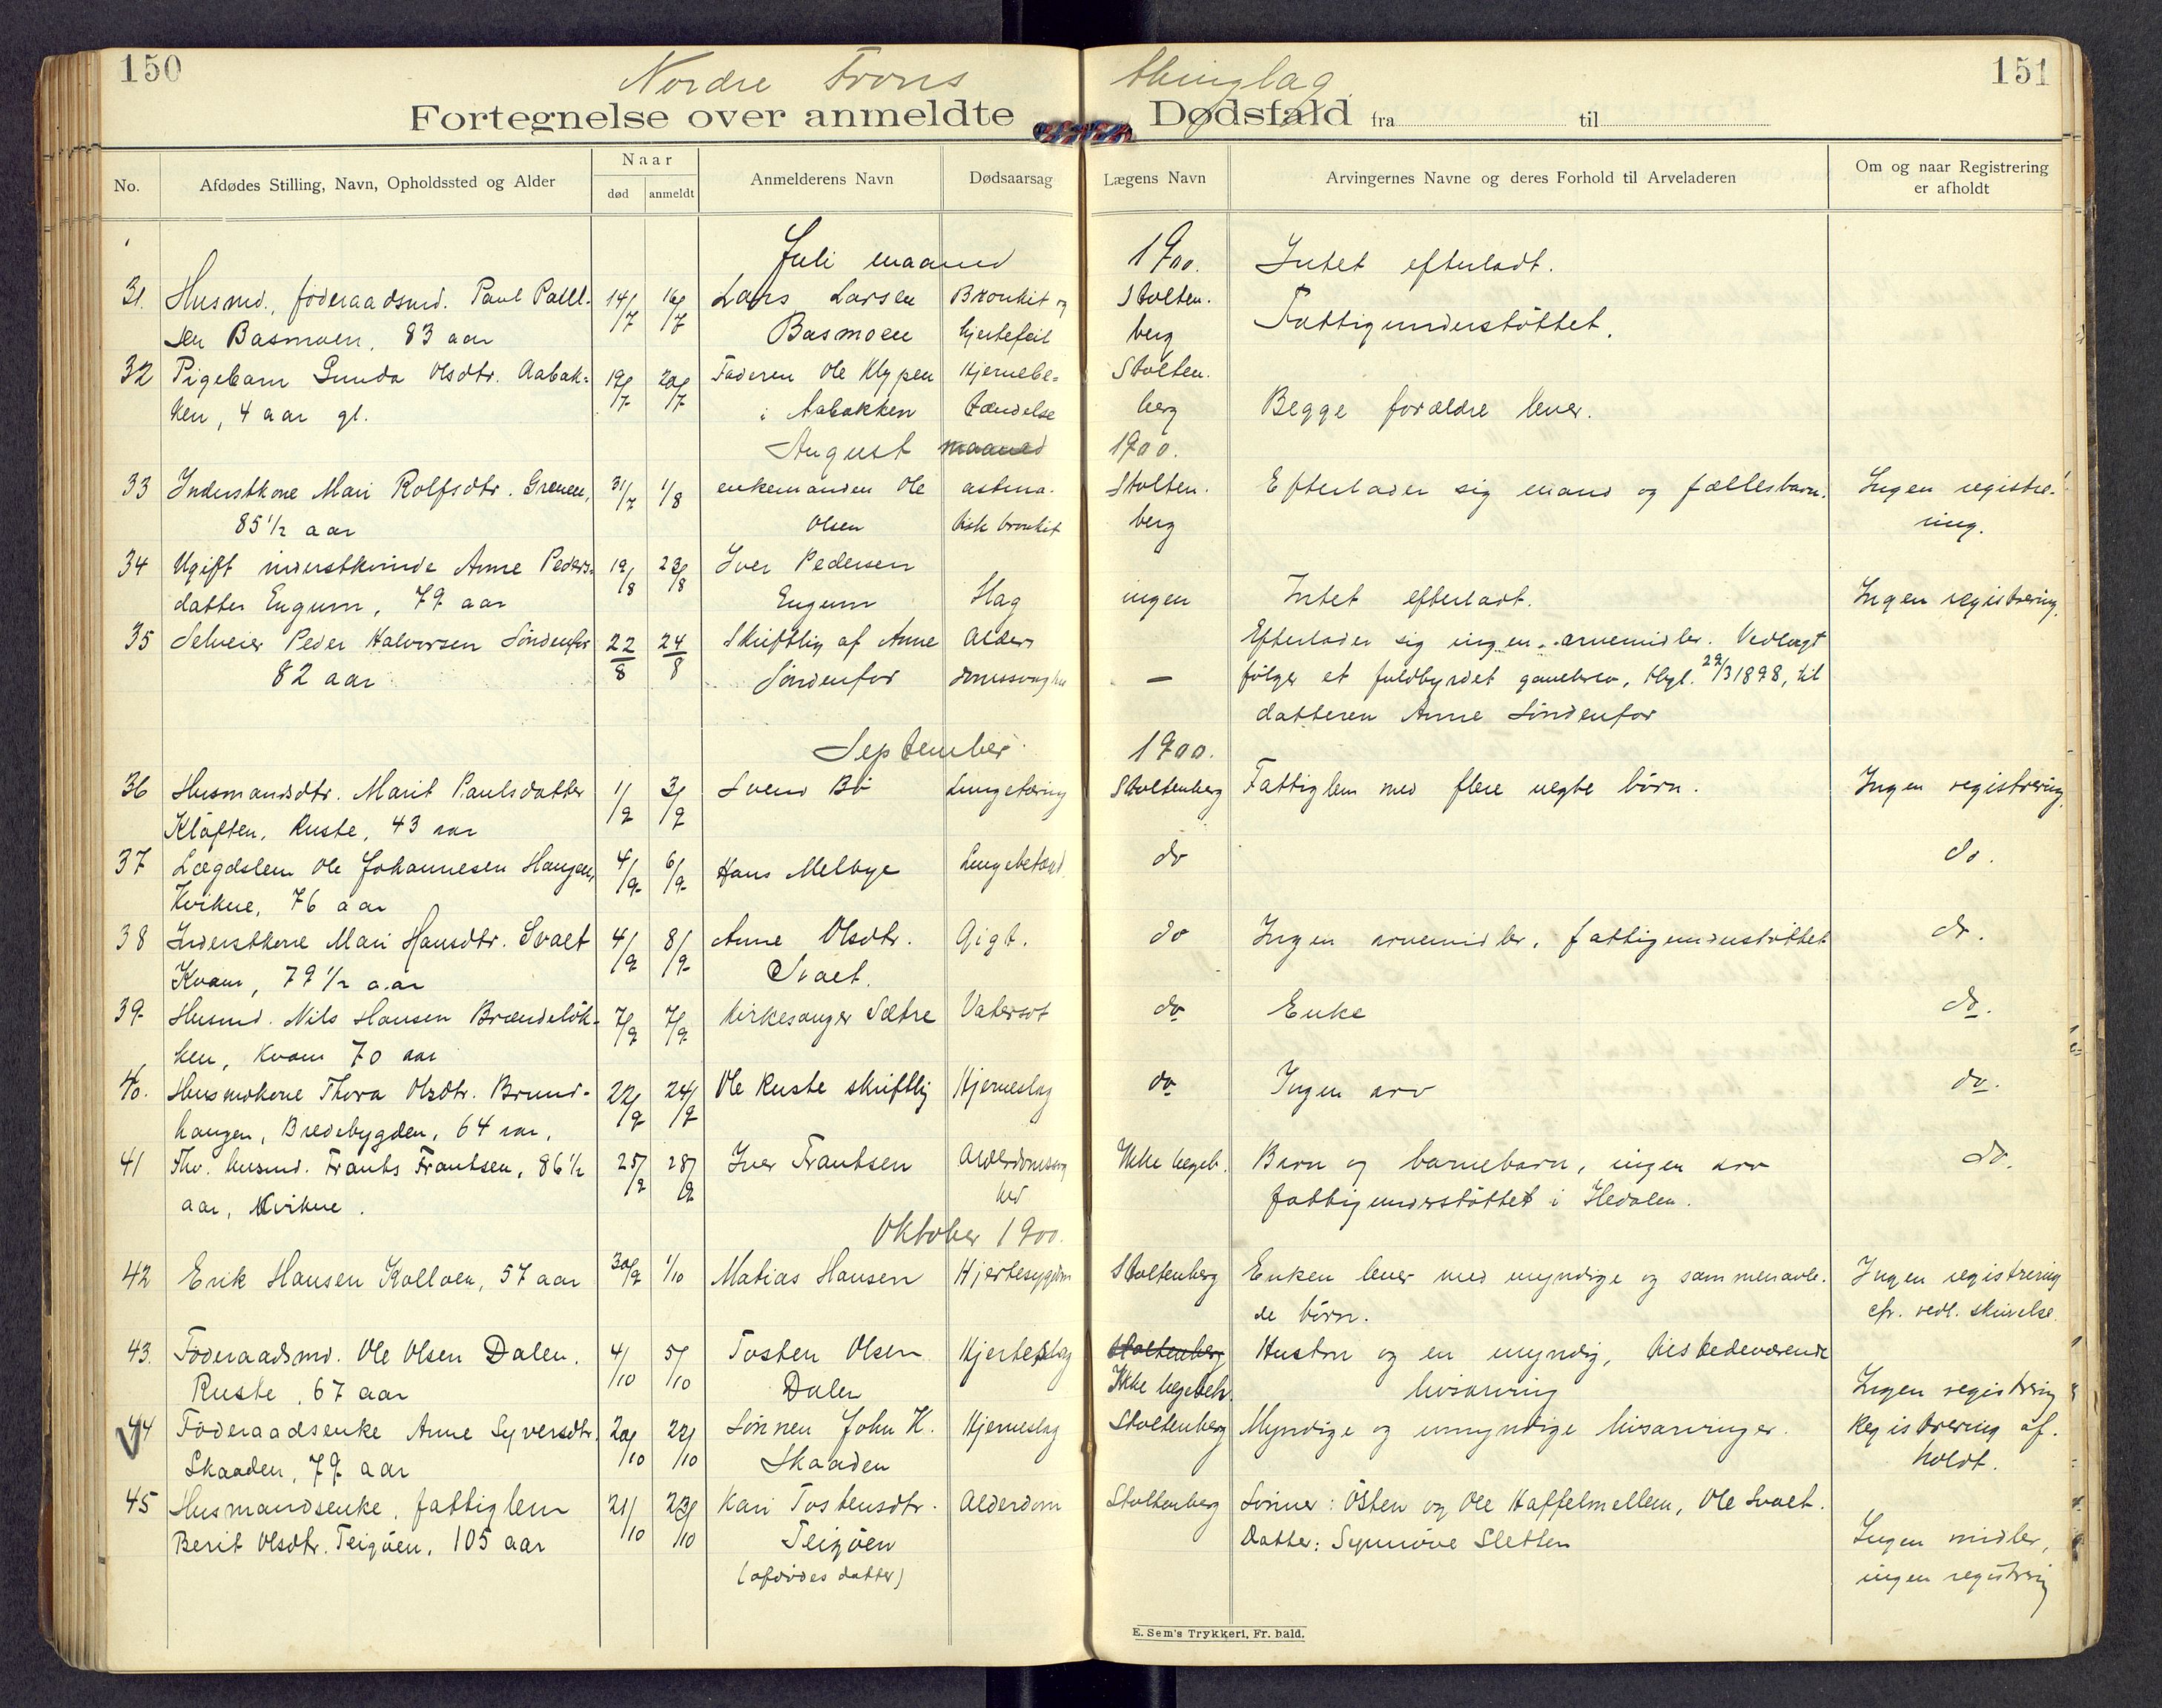 150
151
Nordre Frons thinglag
Fortegnelse over anmeldte Dødsfald fra til
No.
Afdødes Stilling, Navn, Opholdssted og Alder
Naar
død
anmeldt
Anmelderens Navn
Dødsaarsag
Lægens Navn
Arvingernes Navne og deres Forhold til Arveladeren
Om og naar Registrering
er afholdt
Juli maaned 1900. Intet efterladt.
31. Husmd., føderaadsmd. Paul 14/7 16/7 Lars Larsen Bronkit og Stolten-
sen Basmoen, 83 aar Basmoen hjertefeil berg Fattigunderstöttet.
32 Pigebarn Gunda Olsdtr. Aabak- 19/7 20/7 Faderen Ole Klypen Hjernebe- Stolten-
ken, 4 aar gl. i Aabakken tændelse berg Begge forældre lever.
August maaned 1900.
33 Inderstkone Mari Rolfsdtr. 31/7 1/8 enkemanden Ole astma- Stolten- Efterlader sig mand og fællesbarn. Ingen registre-
85 1/2 aar Olsen tisk bronkit berg ring.
34 Ugift inderstkvinde Anne Peders- 19/8 23/8 Iver Pedersen
datter Engum, 79 aar Engum Slag ingen Intet efterladt. Ingen registrering.
35 Selveier Peder Halvorsen Söndenfor 22/8 24/8 Skriftlig af Anne Alder- Efterlader sig ingen arvemidler. Vedlagt
82 aar Söndenfor domssvaghed — følger et fuldbyrdet gavebrev, thgl. 29/3 1898, til
datteren Anne Söndenfor
September 1900.
36 Husmandsdtr. Marit Paulsdatter 1/9 3/9 Svend Bö Lungetæring Stoltenberg Fattiglem med flere uegte börn. Ingen registrering.
Klöften, Ruste, 43 aar
37 Lægdslem Ole Johannesen Haugen, 4/9 6/9 Hans Melbye Lungebetænd. do do.
Kvikne, 76 aar
38 Inderstkone Mari Hansdtr. Svaet 4/9 8/9 Anne Olsdtr. Gigt. do Ingen arvemidler, fattigunderstöttet do.
Kvam, 79 1/2 aar Svaet.
39 Husmd. Nils Hansen Brændelök- 7/9 7/9 Kirkesanger Sætre Vatersot do Enke do.
ken, Kvam 70 aar
40. Husmdkone Thora Olsdtr. Brund- 22/9 24/9 Ole Ruste skriftlig Hjerneslag do Ingen arv do.
haugen, Bredebygden, 64 aar.
41 Fhv. husmd. Frants Frantsen, 86 1/2 25/9 28/9 Iver Frantsen Alderdomssvag Ikke lægeb. Barn og barnebarn, ingen arv do.
aar, Kvikne. hed fattigunderstöttet i Hedalen.
Oktober 1900.
42 Erik Hansen Kolloen, 57 aar 30/9 1/10 Matias Hansen Hjertesygdom Stoltenberg Enken lever med myndige og sammenavle- Ingen registrering
de börn. cfr. vedl. skrivelse.
43. Föderaadsmd. Ole Olsen Dalen, 4/10 5/10 Tosten Olsen Hjerteslag Stoltenberg Hustru og en myndig, tilstedeværende
Ruste, 67 aar Dalen Ikke lægebeh. livsarving Ingen registrering
44 Föderaadsenke Anne Syversdtr. 20/10 22/10 Sönnen John K. Hjerneslag Stoltenberg Myndige og umyndige livsarvinger. Registrering af-
Skaaden, 79 aar Skaaden holdt.
45 Husmandsenke, fattiglem 21/10 23/10 Kari Tostensdtr. Alderdom Stoltenberg Sönner: Östen og Ole Haffelmellem, Ole Svaet.
Berit Olsdtr. Teigöen, 105 aar Teigöen Datter: Synnöve Sletten Ingen midler,
(afdödes datter) ingen registrering
E. Sem's Trykkeri, Fr. hald.